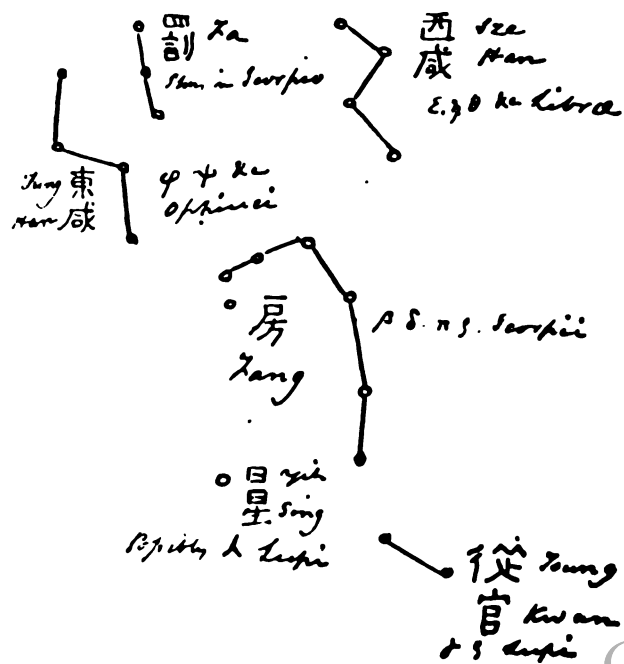 罰 Fa
in Scorpio
西 Sze
咸 Han
θ &c Libra
Tung 東
Han 咸
φ ψ &c
Ophiuci
房
Fang
β δ. π Scorpii
日 Yih
星 Sing
Lupi
從 Tsung
官 Kwan
Lupi